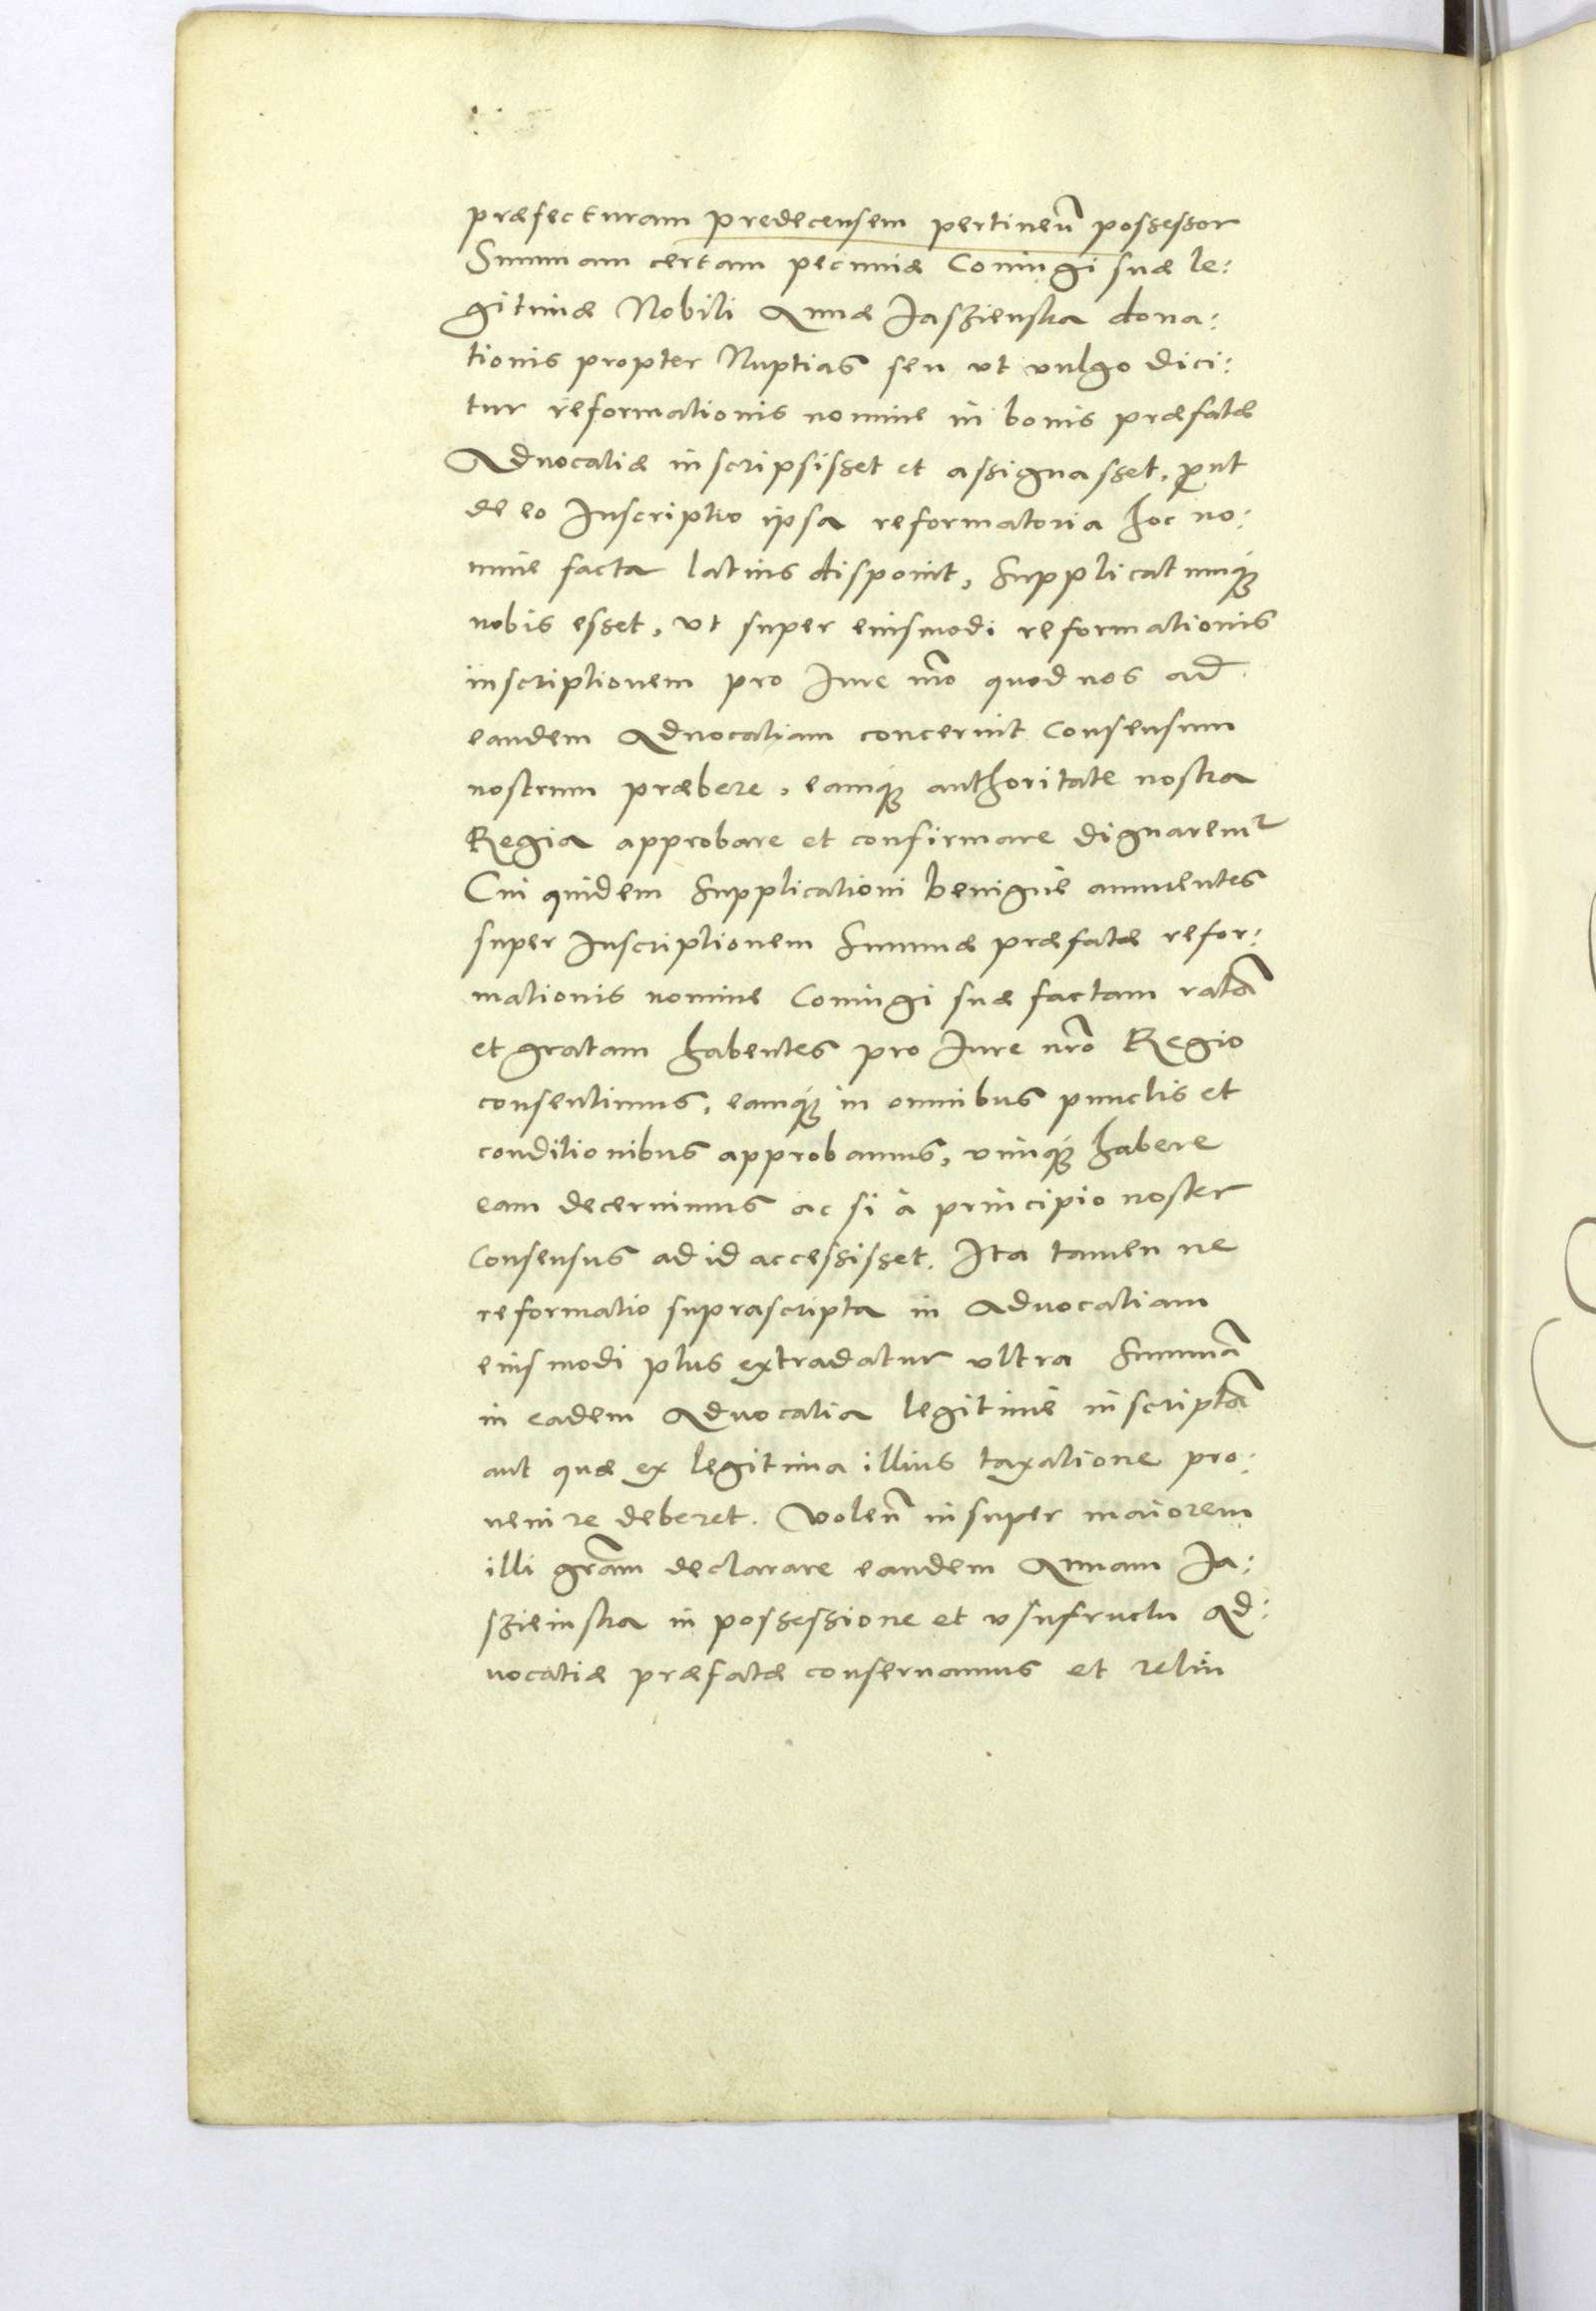 præfecturam predecensem pertineñ possessor
Summam certam pecuniæ Coniugi suæ le:
gitimæ Nobili Annæ Jaszienska dona:
tionis propter Nuptias seu vt vulgo dici:
tur reformationis nomine in bonis præfatæ
Aduocatiæ inscripsisset et assignasset, ꝓut
de eo Inscriptio ipsa reformatoria hoc no:
mine facta latius disponit, Supplicatumqꝫ
nobis esset, vt super eiusmodi reformationis
inscriptionem pro Iure nr̃o quod nos ad
eandem Aduocatiam concernit Consensum
nostrum præbere, eamqꝫ authoritate nostra
Regia approbare et confirmare dignaremᷣ
Cui quidem Supplicationi benigne annuentes
super Inscriptionem Summæ præfatæ refor:
mationis nomine Coniugi suæ factam ratã
et gratam habentes pro Iure nr̃o Regio
consentimus, eamqꝫ in omnibus punctis et
conditionibus approbamus, vimqꝫ habere
eam decernimus ac si à principio noster
Consensus ad id accessisset. Ita tamen ne
reformatio suprascripta in Aduocatiam
eiusmodi plus extradatur vltra Summã
in eadem Aduocatia legitime inscriptã
aut quæ ex legitima illius taxatione pro:
uenire deberet. Voleñ insuper maiorem
illi gr̃am declarare eandem Annam Ja:
szieinska in possessione et vsufructu Ad:
uocatiæ præfatæ conseruamus et relin